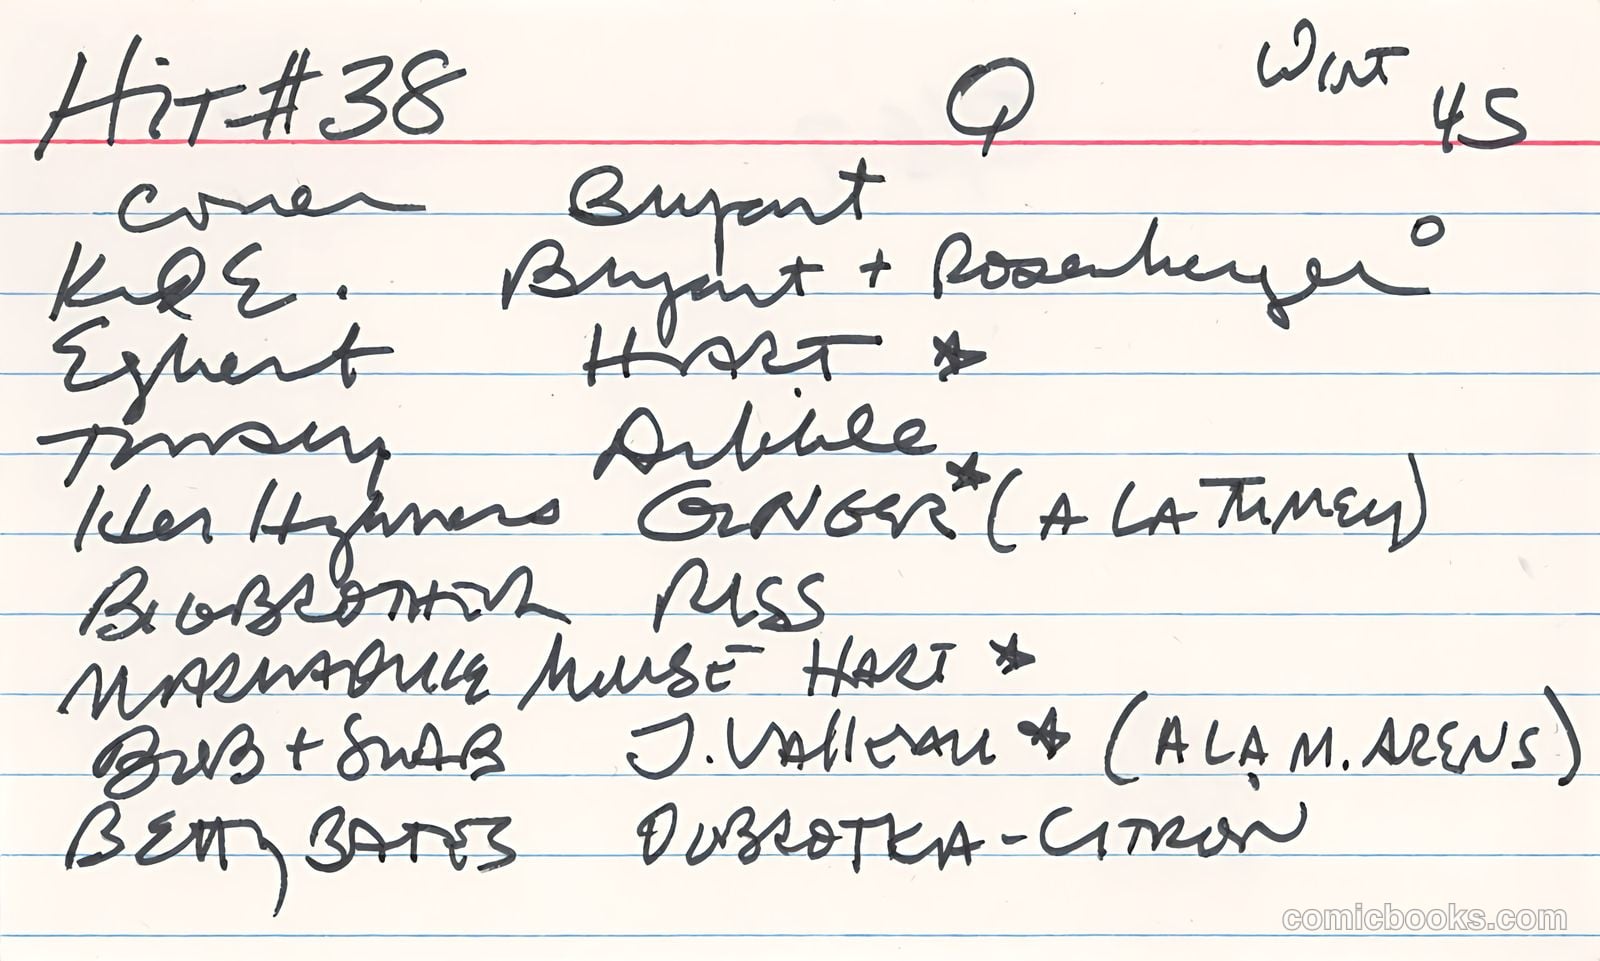 Hit #38 Q Wint 45
Cover Bryant
Kid E. Bryant + Rosenberger °
Egbert HART ★
Tumsey Dribble
Her Hyness GINGER ★ (A LA TUMEY)
BIG BROTHER RISS
MARMADUKE MOUSE HART ★
BUB + SWAB J. VALLEAU ★ (A LA M. ARENS)
BETTY BATES DUBROTKA - CITRON
comicbooks.com